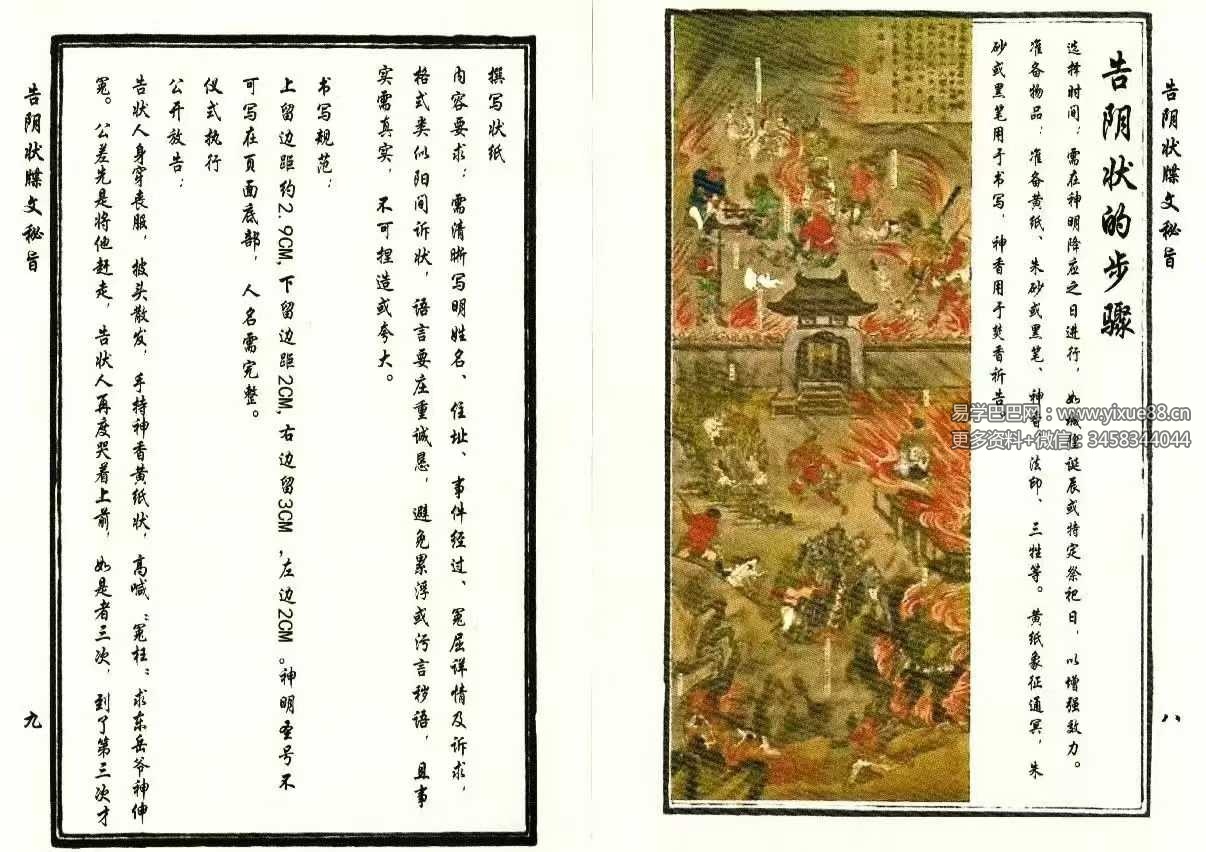 告阴状牒文秘旨
八
告阴状的步骤
选择时间：需在神明降应之日进行，如城隍诞辰或特定祭祀日，以增强效力。
准备物品：准备黄纸、朱砂或黑笔、神香、法印、三牲等。黄纸象征通冥，朱
砂或黑笔用于书写，神香用于焚香祈告。
易学巴巴网：www.yixue88.cn
更多资料+微信：3458344044
撰写状纸
内容要求：需清晰写明姓名、住址、事件经过、冤屈详情及诉求，
格式类似阳间诉状，语言要庄重诚恳，避免累浮或污言秽语，且事
实需真实，不可捏造或夸大。
书写规范：
上留边距约2.9CM,下留边距2CM,右边留3CM,左边2CM。神明圣号不
可写在页面底部，人名需完整。
仪式执行
公开放告：
告状人身穿丧服，披头散发，手持神香黄纸状，高喊“冤枉”求东岳爷神伸
冤。公差先是将他赶走，告状人再度哭着上前，如是者三次，到了第三次才
告阴状牒文秘旨
九